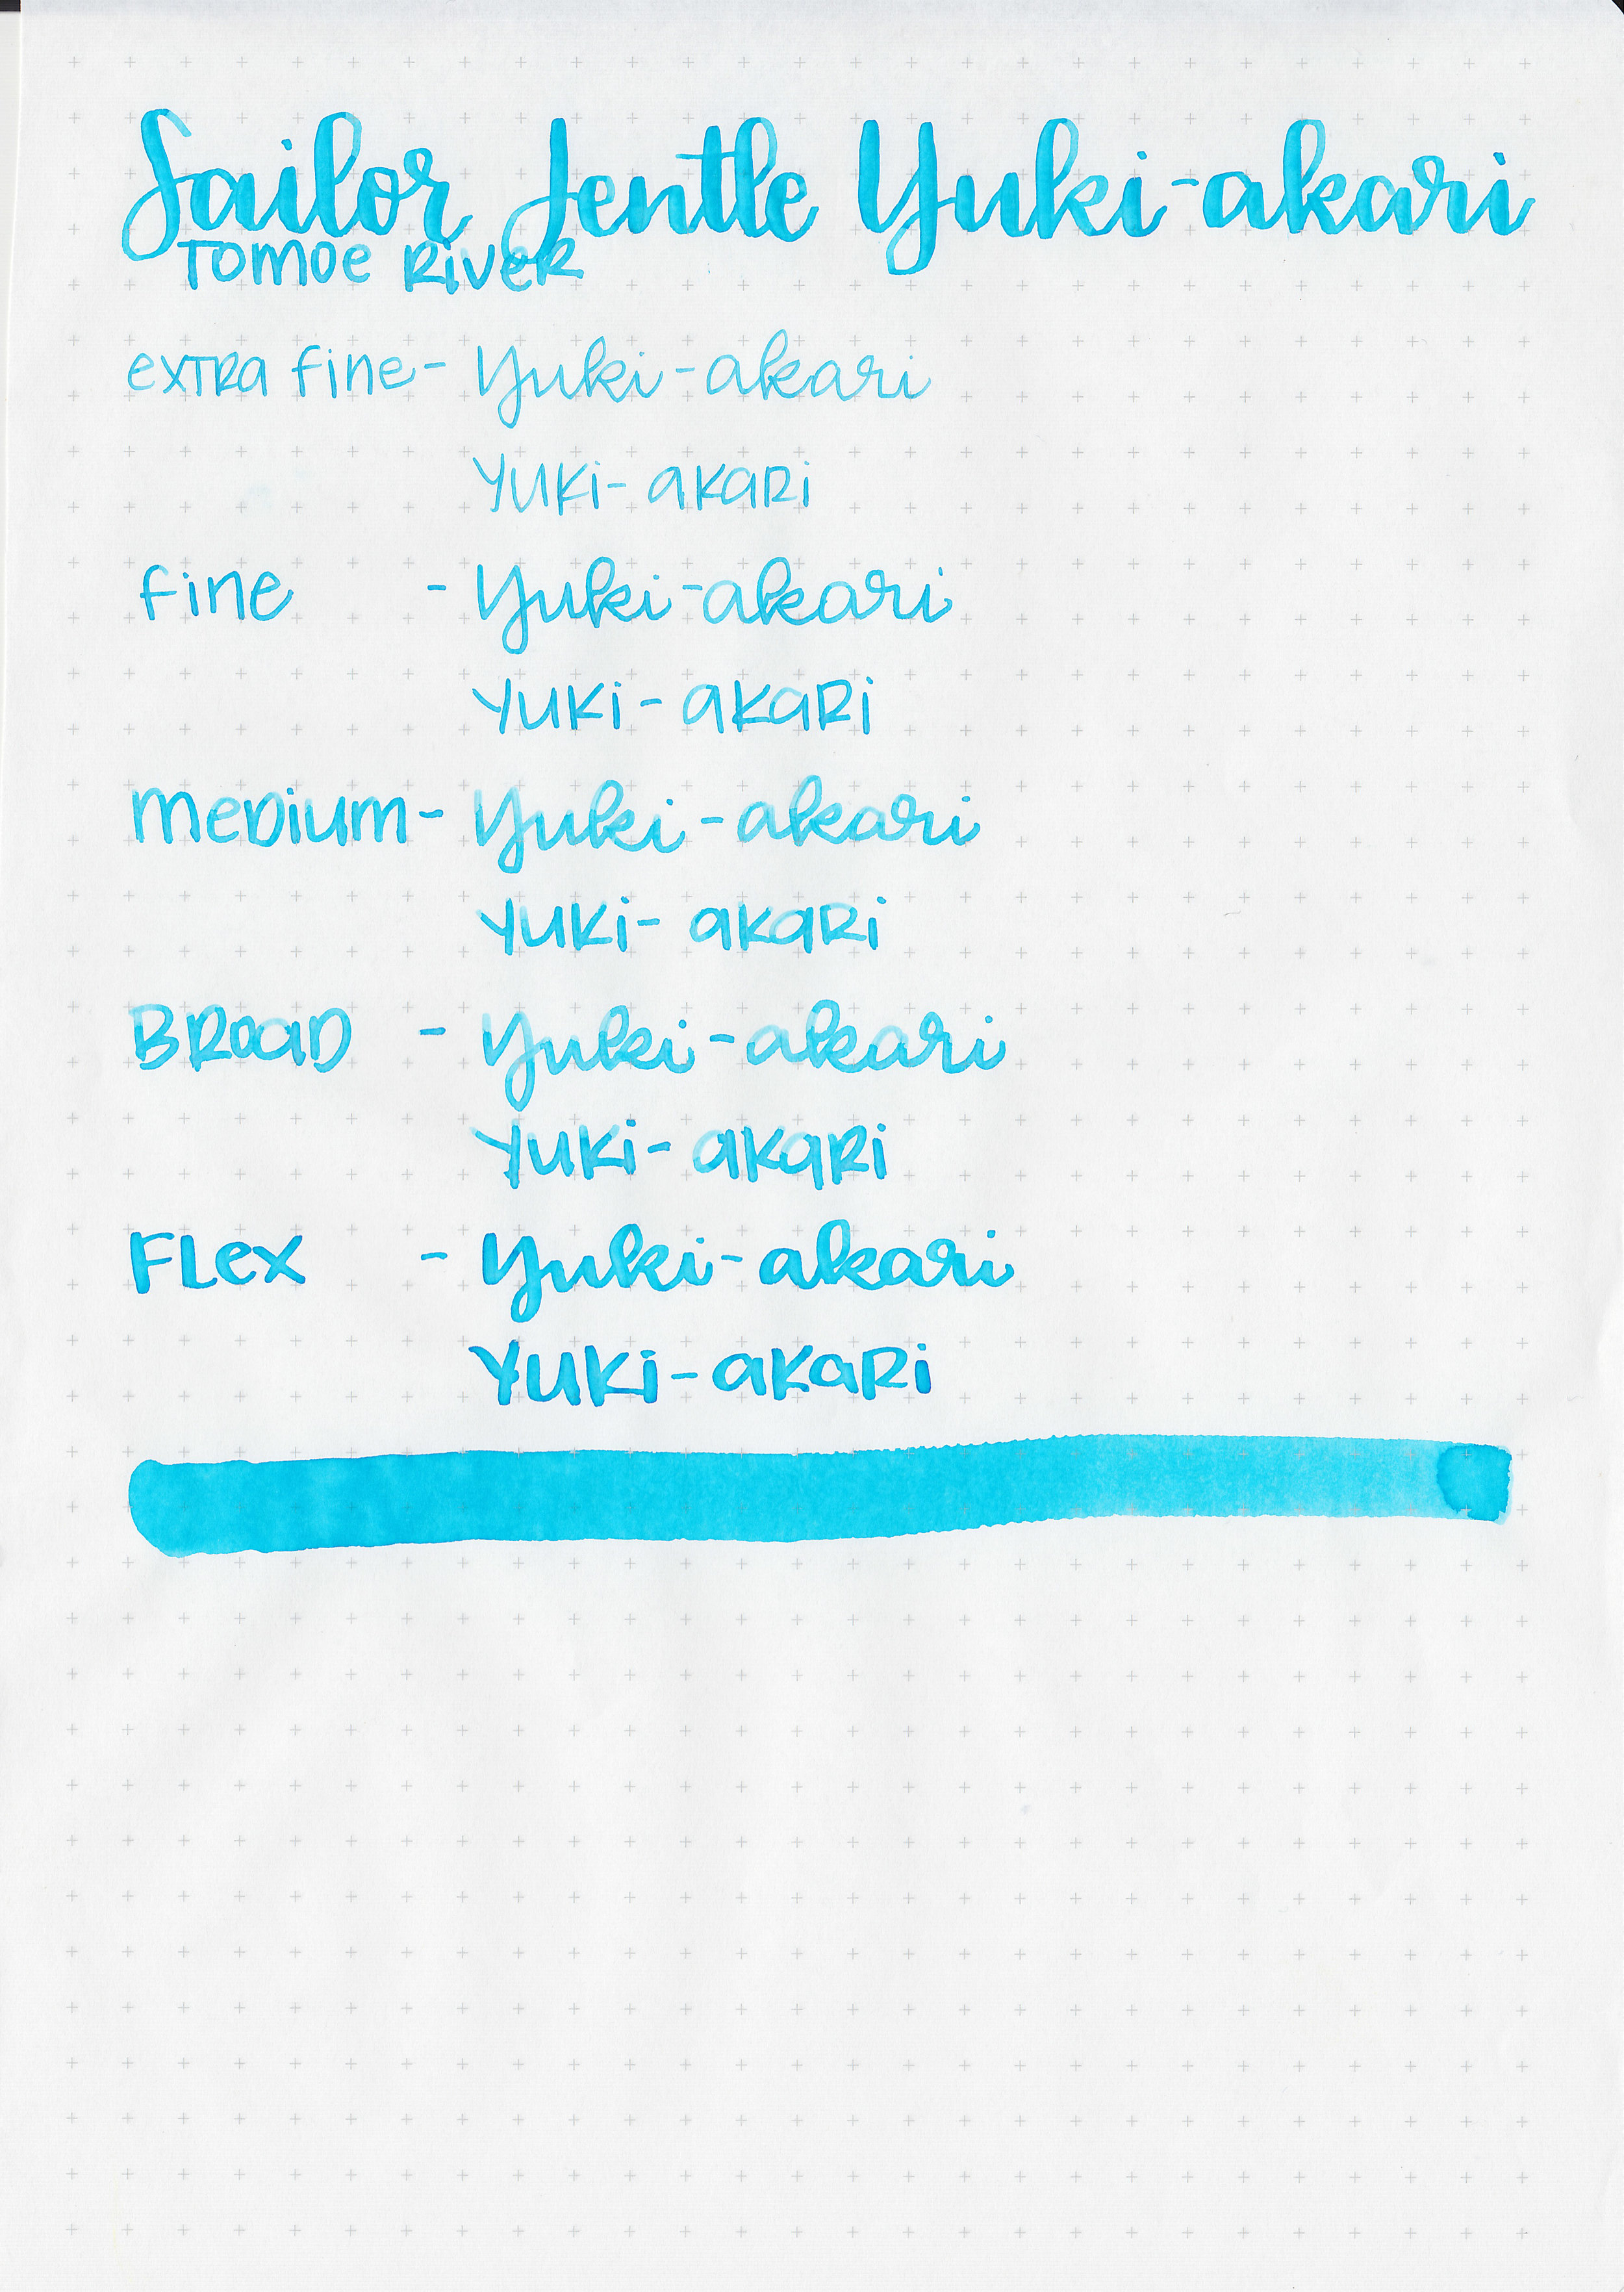 Sailor Jentle Yuki-akari
Tomoe River
extra fine - Yuki-akari
Yuki-akari
fine - Yuki-akari
Yuki-akari
Medium - Yuki-akari
Yuki-akari
Broad - Yuki-akari
Yuki-akari
Flex - Yuki-akari
Yuki-akari